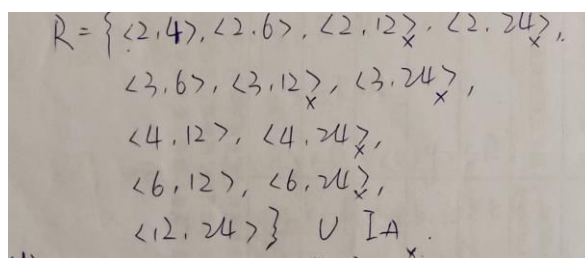 R={<2,4>,<2,6>,<2,12>x,<2,24>x,
<3,6>,<3,12>x,<3,24>x,
<4,12>,<4,24>x,
<6,12>,<6,24>x,
<12,24>} ∪ IAx.